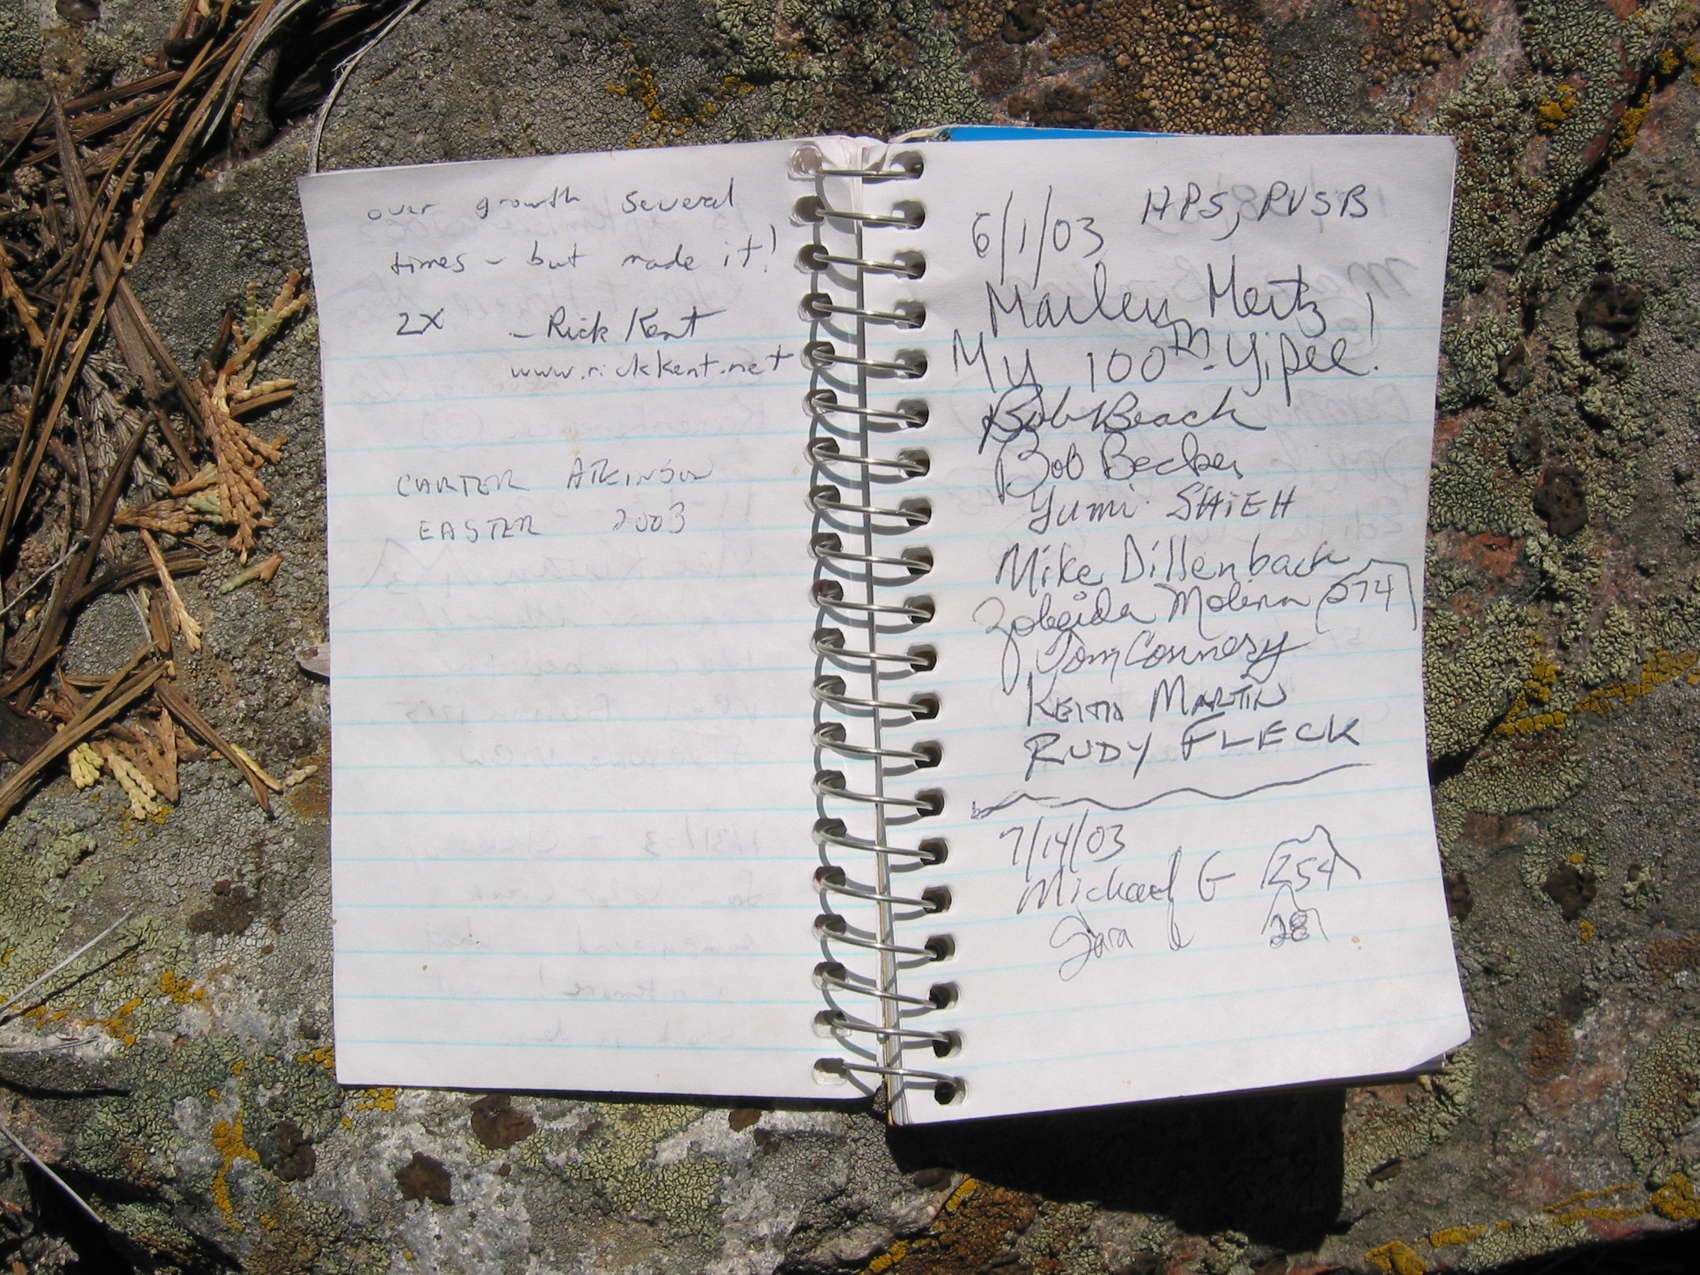 over growth several
times - but made it!
2X - Rick Kent
www.rickkent.net
CARTER ATKINSON
EASTER 2003
6/1/03 HPS, PVSB
Marley Mertz
My 100th - Yipee!
Bob Beach
Bob Becker
Yumi SHIEH
Mike Dillenback
Zobeida Molina 274
Tom Connery
KEITH MARTIN
RUDY FLECK
7/14/03
Michael G 254
Sara 28